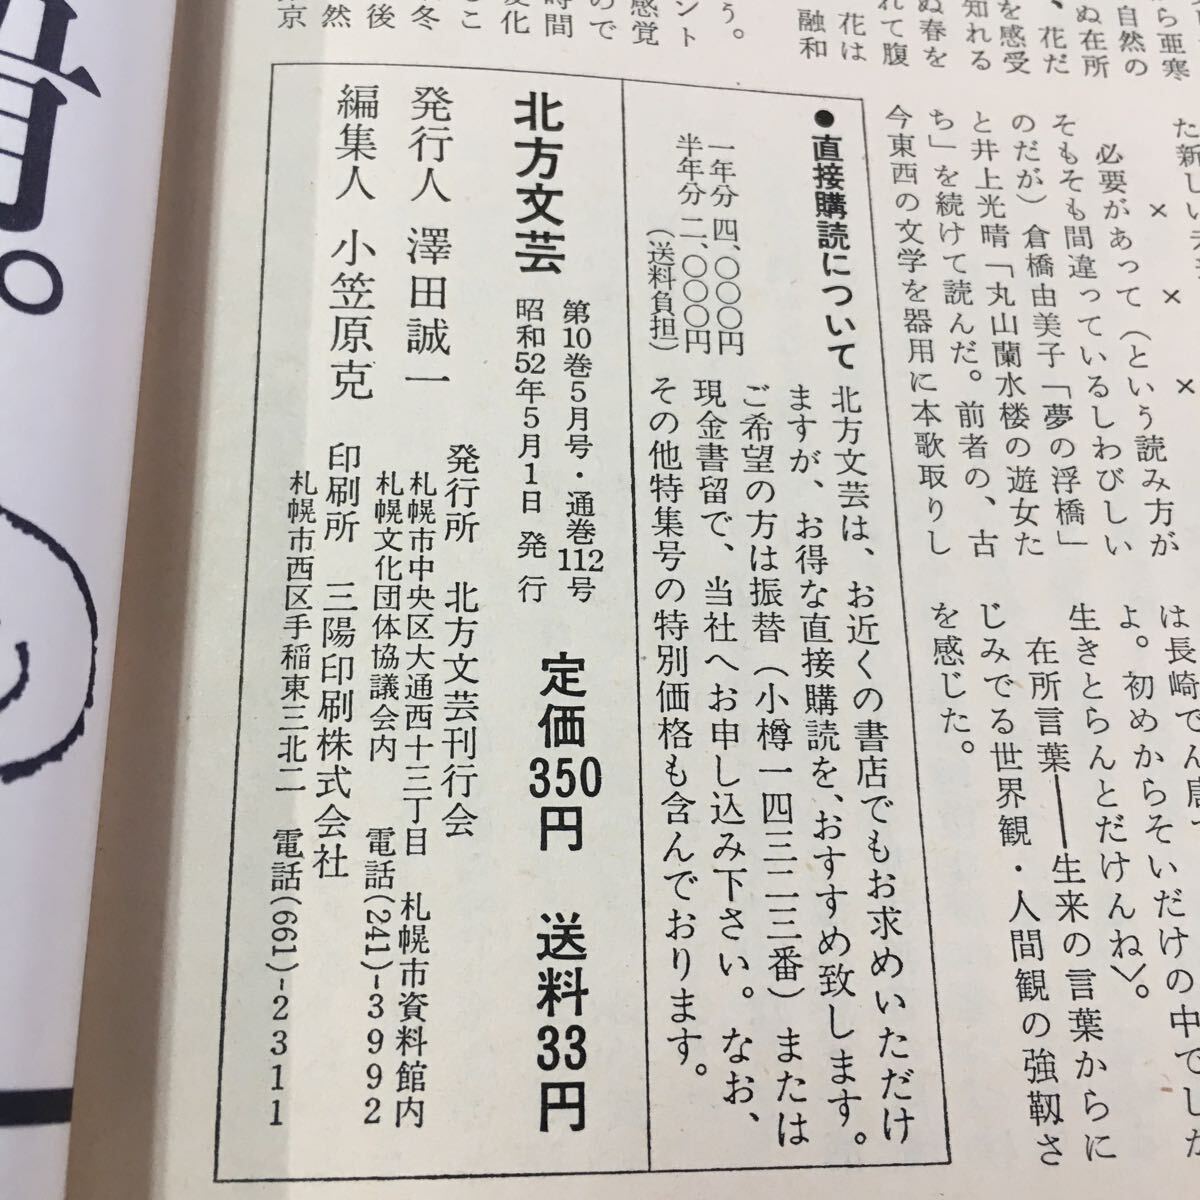 た新しい
×
×
×
必要があって(という読み方が
そもそも間違っているしわびしい
のだが)倉橋由美子「夢の浮橋」
と井上光晴「丸山蘭水楼の遊女た
ち」を続けて読んだ。前者の、古
今東西の文学を器用に本歌取りし
は長崎でん
よ。初めからそいだけの中でしか
生きとらんとだけんね〉。
在所言葉――生来の言葉からに
じみでる世界観・人間観の強靱さ
を感じた。
ら亜寒
自然の
ぬ在所
、花だ
を感受
知れる
ぬ春を
れて腹
花は
融和
う。
ント
感覚
ので
時間
変化
るこ
冬
後
然
京
●直接購読について
一年分 四、〇〇〇円
半年分 二、〇〇〇円
(送料負担)
北方文芸は、お近くの書店でもお求めいただけ
ますが、お得な直接購読を、おすすめ致します。
ご希望の方は振替(小樽一四三二三番)または
現金書留で、当社へお申し込み下さい。なお、
その他特集号の特別価格も含んでおります。
北方文芸
第10巻5月号・通巻112号
昭和52年5月1日 発行
定価350円 送料33円
発行人 澤田誠一
編集人 小笠原克
発行所 北方文芸刊行会
札幌市中央区大通西十三丁目 札幌市資料館内
札幌文化団体協議会内 電話(241)-3992
印刷所 三陽印刷株式会社
札幌市西区手稲東三北二 電話(661)-2311